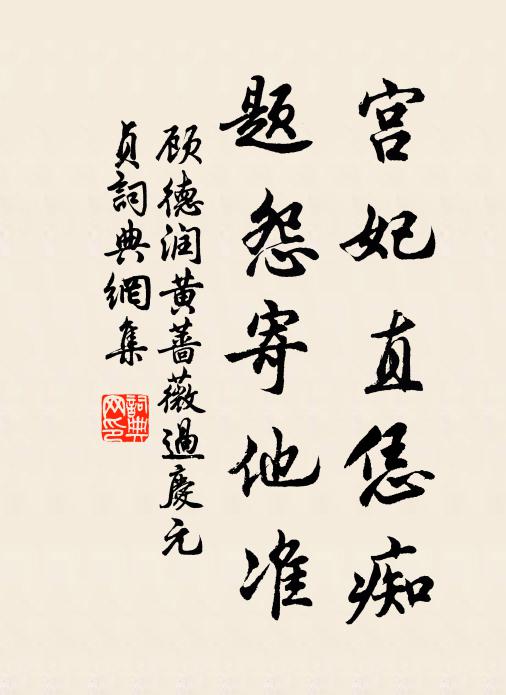 宫妃直恁痴
题怨寄他准
顾德润黄蔷薇過慶元
贞詞典網集
詞典网印